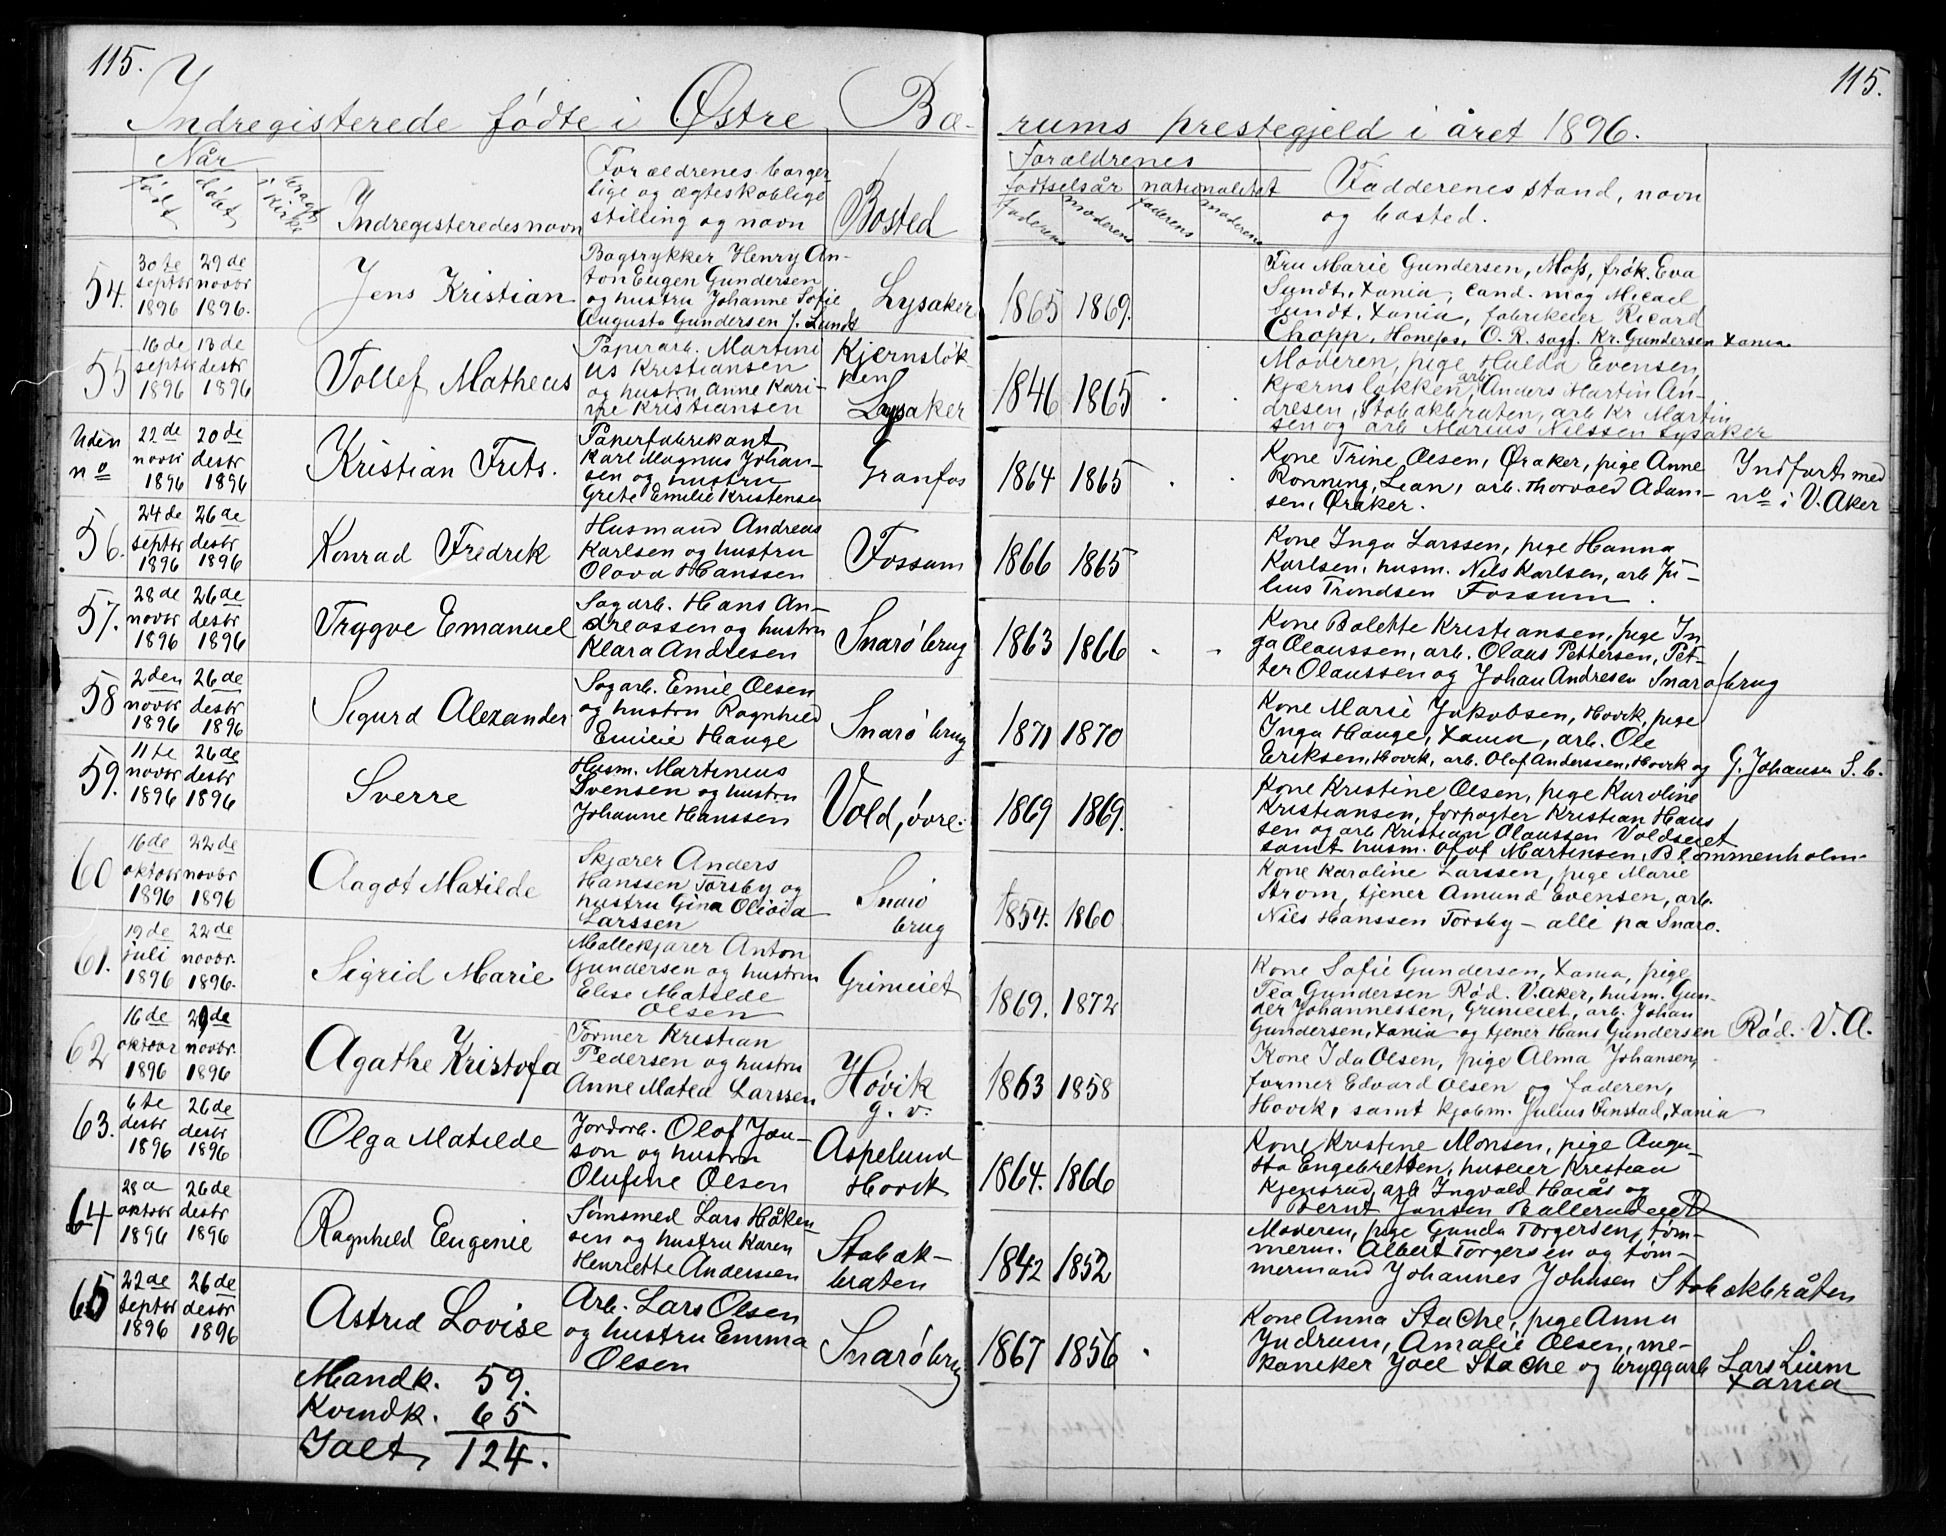 115.
115.
Indregisterede fødte i Østre Bæ-
rums prestegjeld i året 1896.
Når
født
døbt
bragt i kirke
Indregisteredes navn
Forældrenes borger-
lige og ægteskablige
stilling og navn
Bosted
Forældrenes
fødtselsår
nationalitet
faderens
moderens
faderens
moderens
Fadderenes stand, navn
og bosted.
54.
30te
septbr
1896
29de
novbr
1896.
Jens Kristian
Bogtrykker Henry An-
ton Eugen Gundersen
og hustru Johanne Sofie
Augusta Gundersen f. Lundt
Lysaker
1865
1869.
Fru Marie Gundersen, Moss, frøk. Eva
Lundt, Xania, cand. mag Micael
Lundt, Xania, fabrikeier Ricard
Chopp, Hønefos, O. R. sagf. Kr. Gundersen Xania
55
16de
septbr
1896
13de
desbr
1896
Tollef Matheus
Papirarb. Martini
us Kristiansen
og hustru Anne Kari-
ne Kristiansen
Kjernsløk-
ken
Lysaker
1846
1865
Moderen, pige Hulda Evensen,
Kjærnsløkken, arb. Anders Martin An-
dresen, Stabækbråten, arb Kr Martin
sen og arb Marius Nilssen Lysaker
Uden
no
22de
novbr
1896
20de
desbr
1896
Kristian Frits.
Papirfabrikant
Karl Magnus Johan-
sen og hustru
Grete Emilie Kristensen
Granfos
1864
1865
Kone Trine Olsen, Øraker, pige Anne
Rønning, Lean, arb. Thorvald Adam-
sen, Øraker.
Indført med
no i V. Aker
56.
24de
septbr
1896
26de
desbr
1896
Konrad Fredrik
Husmand Andreas
Karlsen og hustru
Olava Hanssen
Fossum
1866
1865
Kone Inga Larssen, pige Hanna
Karlsen, husm. Nils Karlsen, arb Ju-
lius Trondsen Fossum.
57.
28de
novbr
1896
26de
desbr
1896
Trygve Emanuel
Sagarb. Hans An-
dreassen og hustru
Klara Andresen
Snarøbrug
1863
1866
Kone Bolette Kristiansen, pige In
ga Olaussen, arb. Olaus Pettersen, Pet-
ter Olaussen og Johan Andresen Snarøbrug
58
2den
novbr
1896
26de
desbr
1896
Sigurd Alexander
Sagarb. Emil Olsen
og hustru Ragnhild
Emilie Hauge
Snarøbrug
1871
1870
Kone Marie Jakobsen, Høvik, pige
Inga Hauge, Xania, arb. Ole
Eriksen, Høvik, arb. Olaf Anderssen, Høvik og G. Johansen S. b.
59.
11te
novbr
1896
26de
desbr
1896
Sverre
Husm. Martinius
Svensen og hustru
Johanne Hanssen
Vold, øvre.
1869
1869.
Kone Kristine Olsen, pige Karoline
Kristiansen, forpagter Kristian Hans
sen og arb Kristian Olaussen Voldseiet
samt husm. Olaf Martinsen, Blommenholm
60
16de
oktobr
1896
22de
novbr
1896
Aagot Matilde
Skjærer Anders
Hanssen Torsby og
hustru Gina Olivia
Larssen
Snarø
brug
1854.
1860
Kone Karoline Larssen, pige Marie
Strøm, tjener Amund Evensen, arb.
Nils Hanssen Torsby - alle på Snarø.
61.
19de
juli
1896
22de
novbr.
1896.
Sigrid Marie
Møllekjører Anton
Gundersen og hustru
Elise Matilde
Olsen
Grinieiet
1869.
1872
Kone Sofie Gundersen, Xania, pige
Tea Gundersen Rød. V. Aker, husm. Gun-
der Johannessen, Grinieiet, arb. Johan
Gundersen, Xania og tjener Hans Gundersen Rød. V. A.
62
16de
oktobr
1896
29de
novbr.
1896
Agathe Kristofa
Former Kristian
Pedersen og hustru
Anne Matea Larssen
Høvik
g. v.
1863
1858
Kone Ida Olsen, pige Alma Johansen,
former Edvard Olsen og faderen,
Høvik, samt kjøbm. Julius Finstad, Xania
63.
6te
desbr
1896
26de
desbr
1896
Olga Matilde
Jordarb. Olof Jan-
son og hustru
Olufine Olsen
Aspelund
Høvik
1864.
1866
Kone Kristine Monsen, pige Augu-
sta Engebretsen, huseier Kristian
Kjensrud, arb Ingvald Haiås og
Bernt Jansen Ballerudeiet
64
28a
oktobr
1896
26de
desbr
1896
Ragnhild Eugenie
Sømsmed Lars Håken
sen og hustru Karen
Henriette Anderssen
Stabæk-
bråten
1842
1852
Moderen, pige Gunda Torgersen, tøm-
merm. Albert Torgersen og tøm-
mermand Johannes Johnsen Stabækbråten
65
22de
septbr
1896
26de
desbr
1896
Astrid Lovise
Arb. Lars Olsen
og hustru Emma
Olsen
Snarøbrug
1867
1856
Kone Anna Stache, pige Anna
Indrum, Amalie Olsen, me-
kaniker Joel Stache og bryggarb Lars Liem
Xania
Mandk. 59.
Kvindk. 65
Ialt, 124.